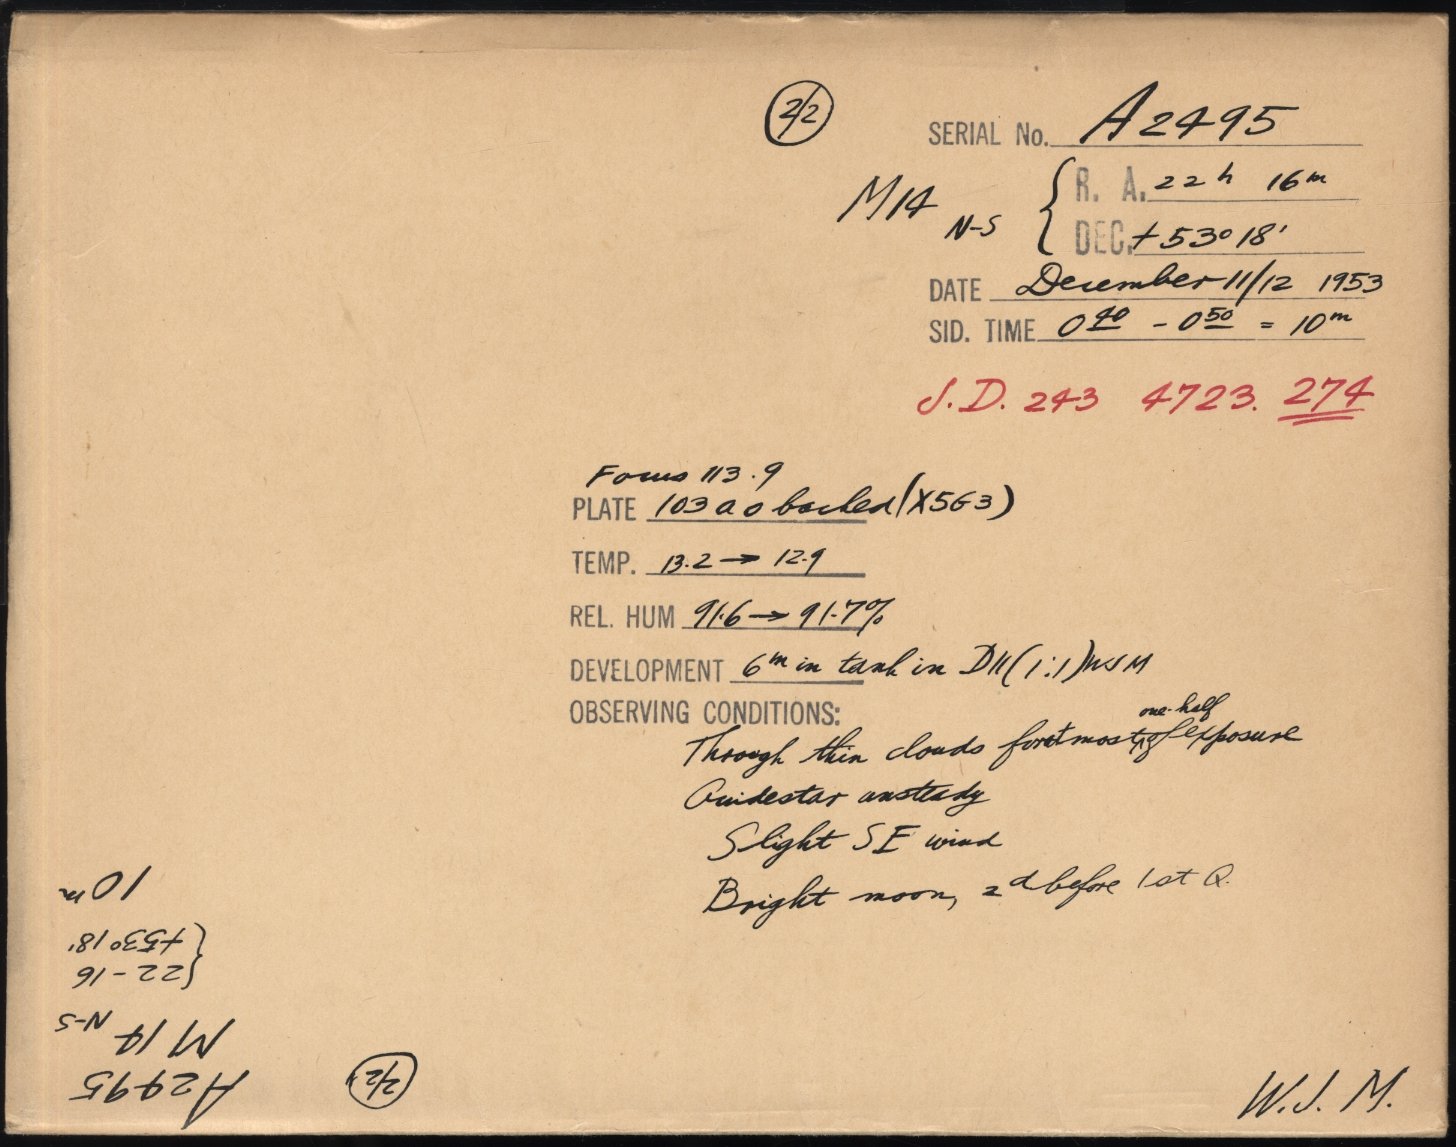 2/2
SERIAL No. A2495
M14 N-S { R. A. 22h 16m
DEC. +53° 18'
DATE December 11/12 1953
SID. TIME 0 40 - 0 50 = 10m
J.D. 243 4723. 274
Focus 113.9
PLATE 103 a o backed (X5G3)
TEMP. 13.2 → 12.9
REL. HUM 91.6 → 91.7%
DEVELOPMENT 6m in tank in D11 (1:1) WJM
OBSERVING CONDITIONS:
one-half
Through thin clouds for most of exposure
Guidestar unsteady
Slight SE wind
Bright moon, 2d before 1st Q.
A2495
M14 N-S
{ 22-16
+53° 18'
10m
2/2
W.J.M.